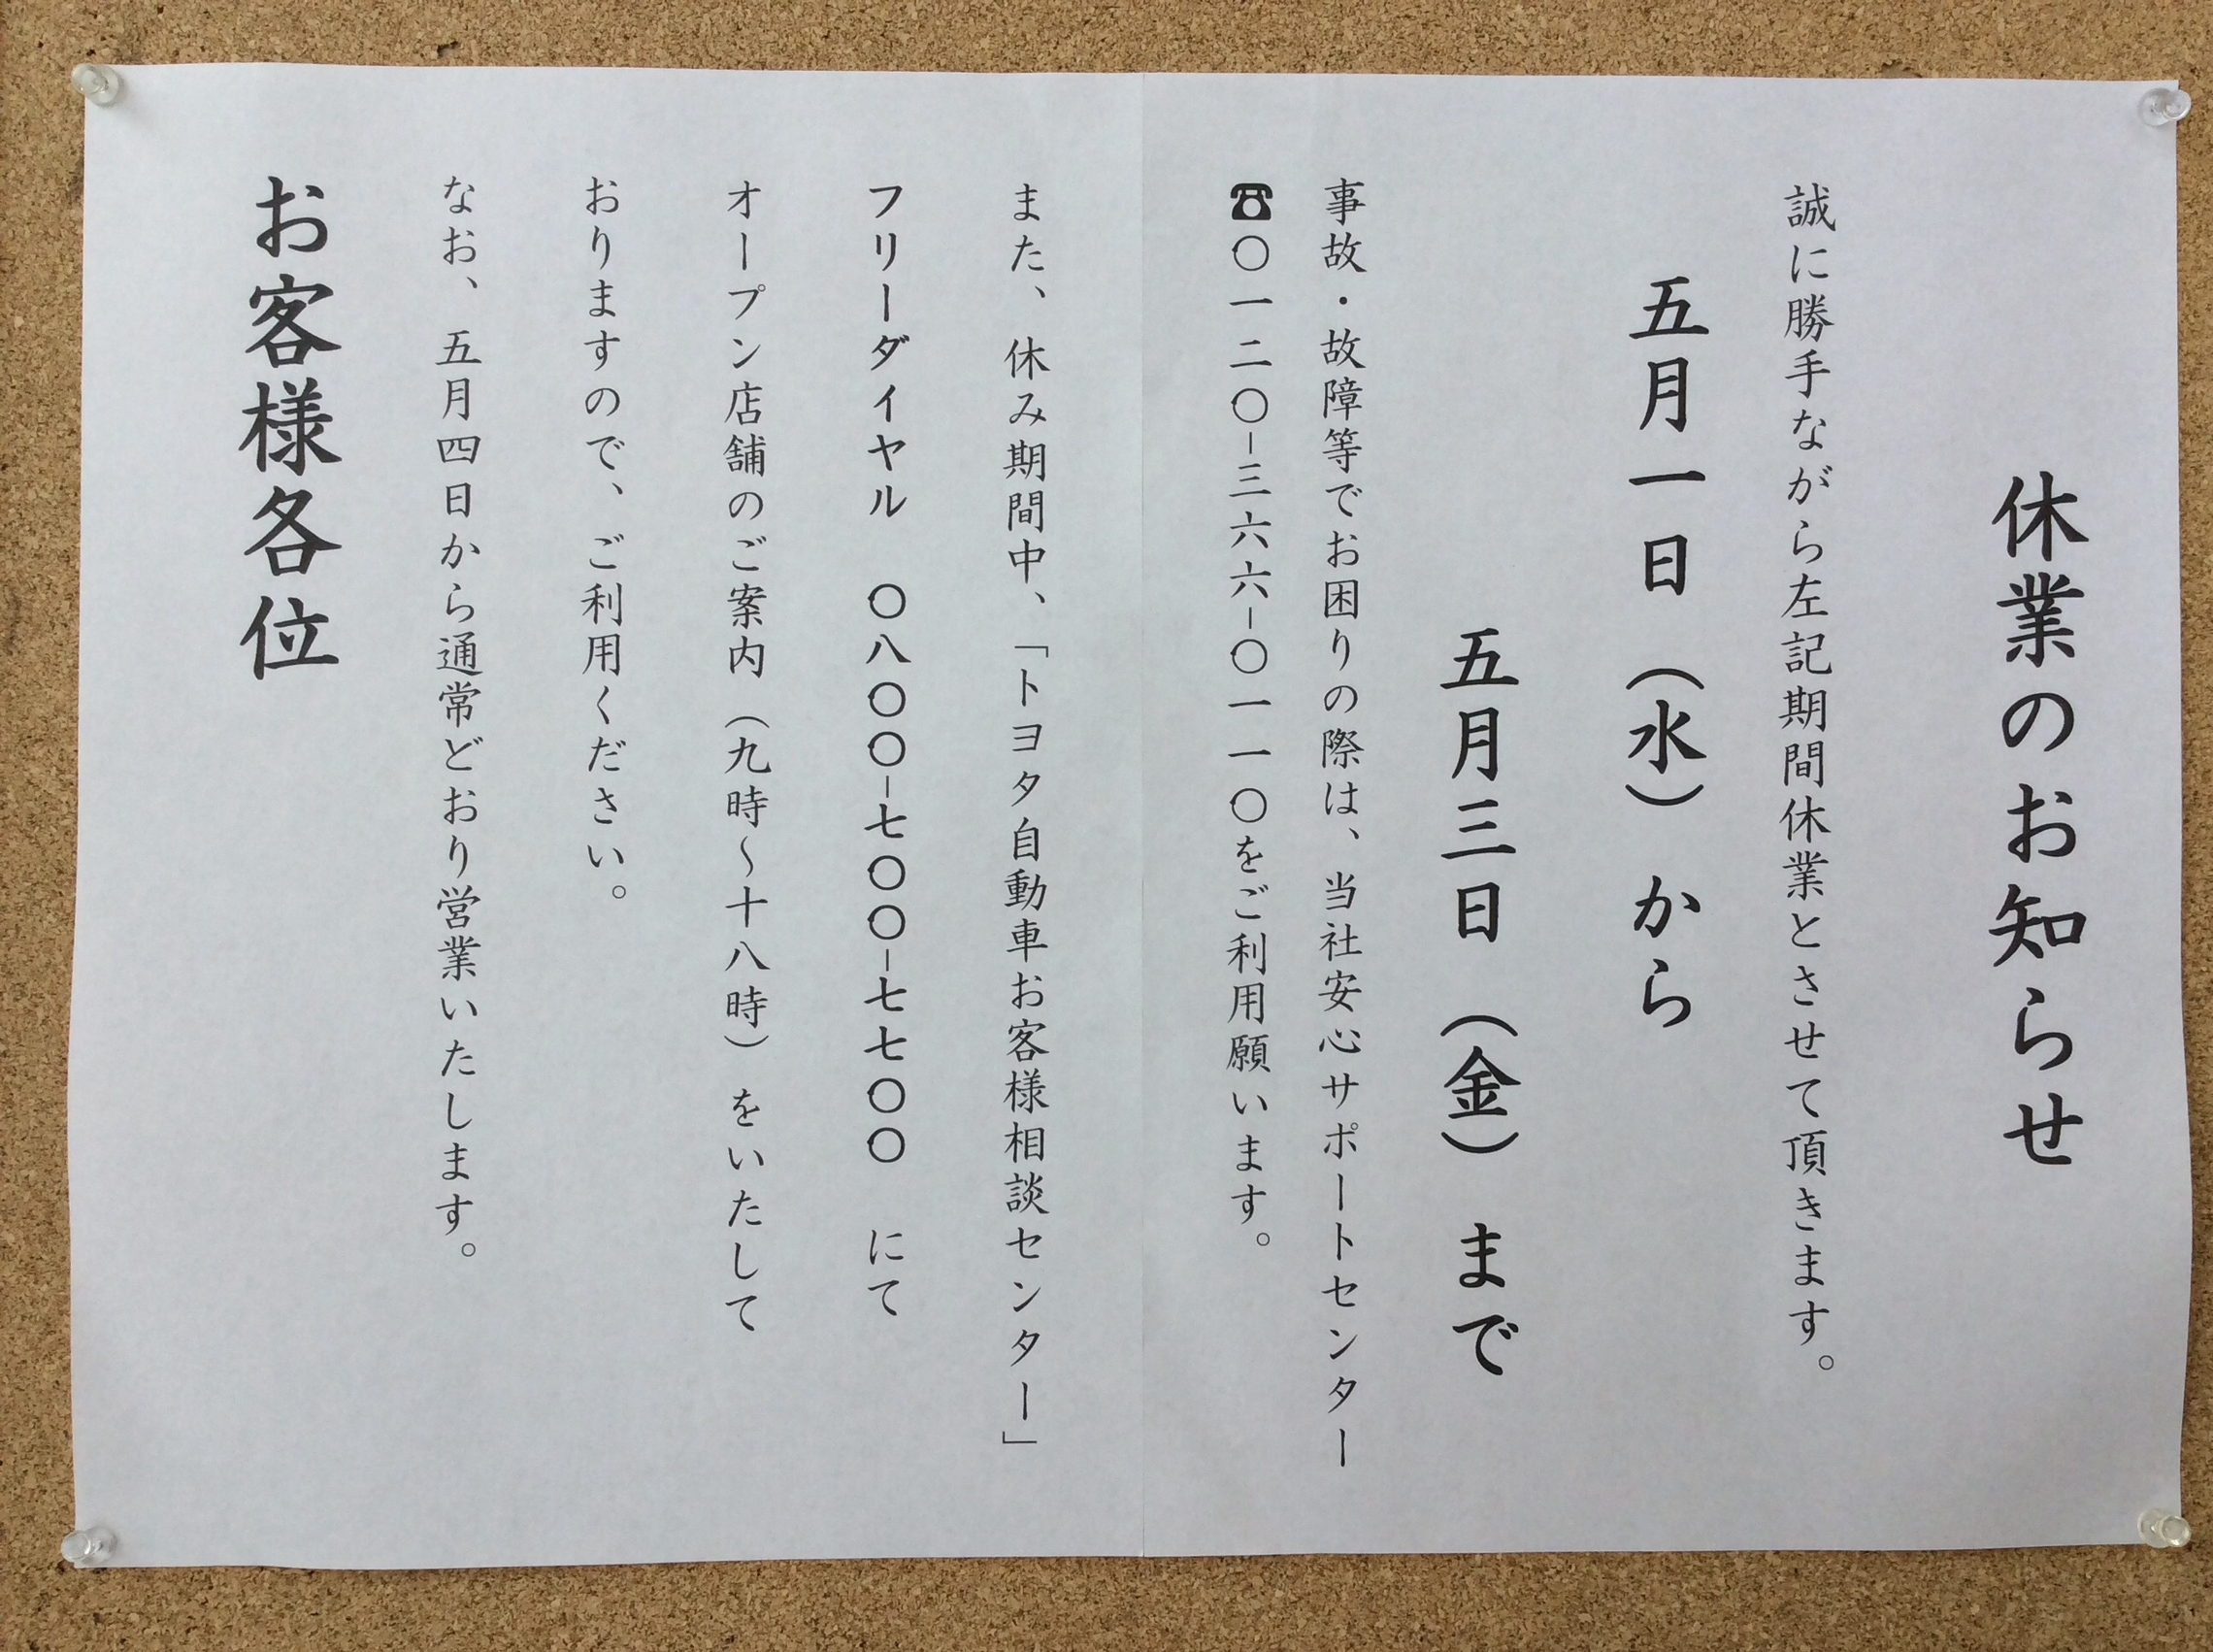 休業のお知らせ
誠に勝手ながら左記期間休業とさせて頂きます。
五月一日（水）から
五月三日（金）まで
事故・故障等でお困りの際は、当社安心サポートセンター
☎〇一二〇-三六六-〇一一〇をご利用願います。
また、休み期間中、「トヨタ自動車お客様相談センター」
フリーダイヤル　〇八〇〇-七〇〇-七七〇〇　にて
オープン店舗のご案内（九時～十八時）をいたして
おりますので、ご利用ください。
なお、五月四日から通常どおり営業いたします。
お客様各位